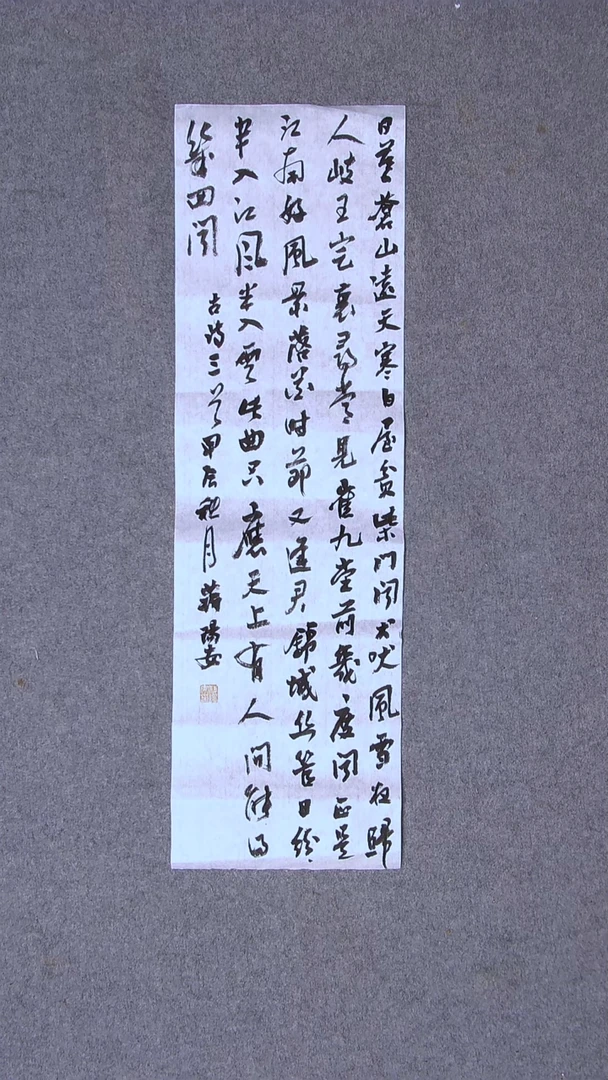 日暮蒼山遠天寒白屋貧柴門聞犬吠風雪夜歸
人岐王宅裏尋常見崔九堂前幾度聞正是
江南好風景落花時節又逢君錦城丝管日纷纷
半入江風半入雲此曲只應天上有人間能得
幾回聞
古詩三首甲辰秋月蔣陽安